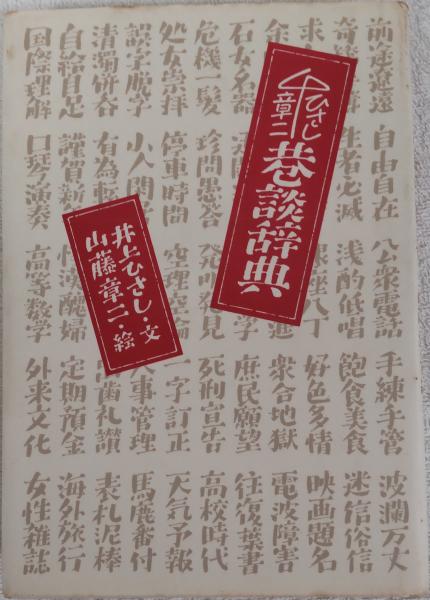 ひさし
章二
巷談辞典
井上ひさし・文
山藤章二・絵
前途遼遠
石女名器
危機一髪
処女崇拝
誤字脱字
清濁併呑
自給自足
国際理解
自由自在
生者必滅
珍問愚答
停車時間
小人閑
有為転
謹賀新
口琴演奏
公衆電話
浅酌低唱
座八丁
進
学
発明発見
空理空論
漢醜婦
高等数学
手練手管
飽食美食
好色多情
衆合地獄
庶民願望
死刑宣告
一字訂正
人事管理
歯礼讃
定期預金
外来文化
波瀾万丈
迷信俗信
映画題名
電波障害
往復葉書
高校時代
天気予報
馬鹿番付
表札泥棒
海外旅行
女性雑誌